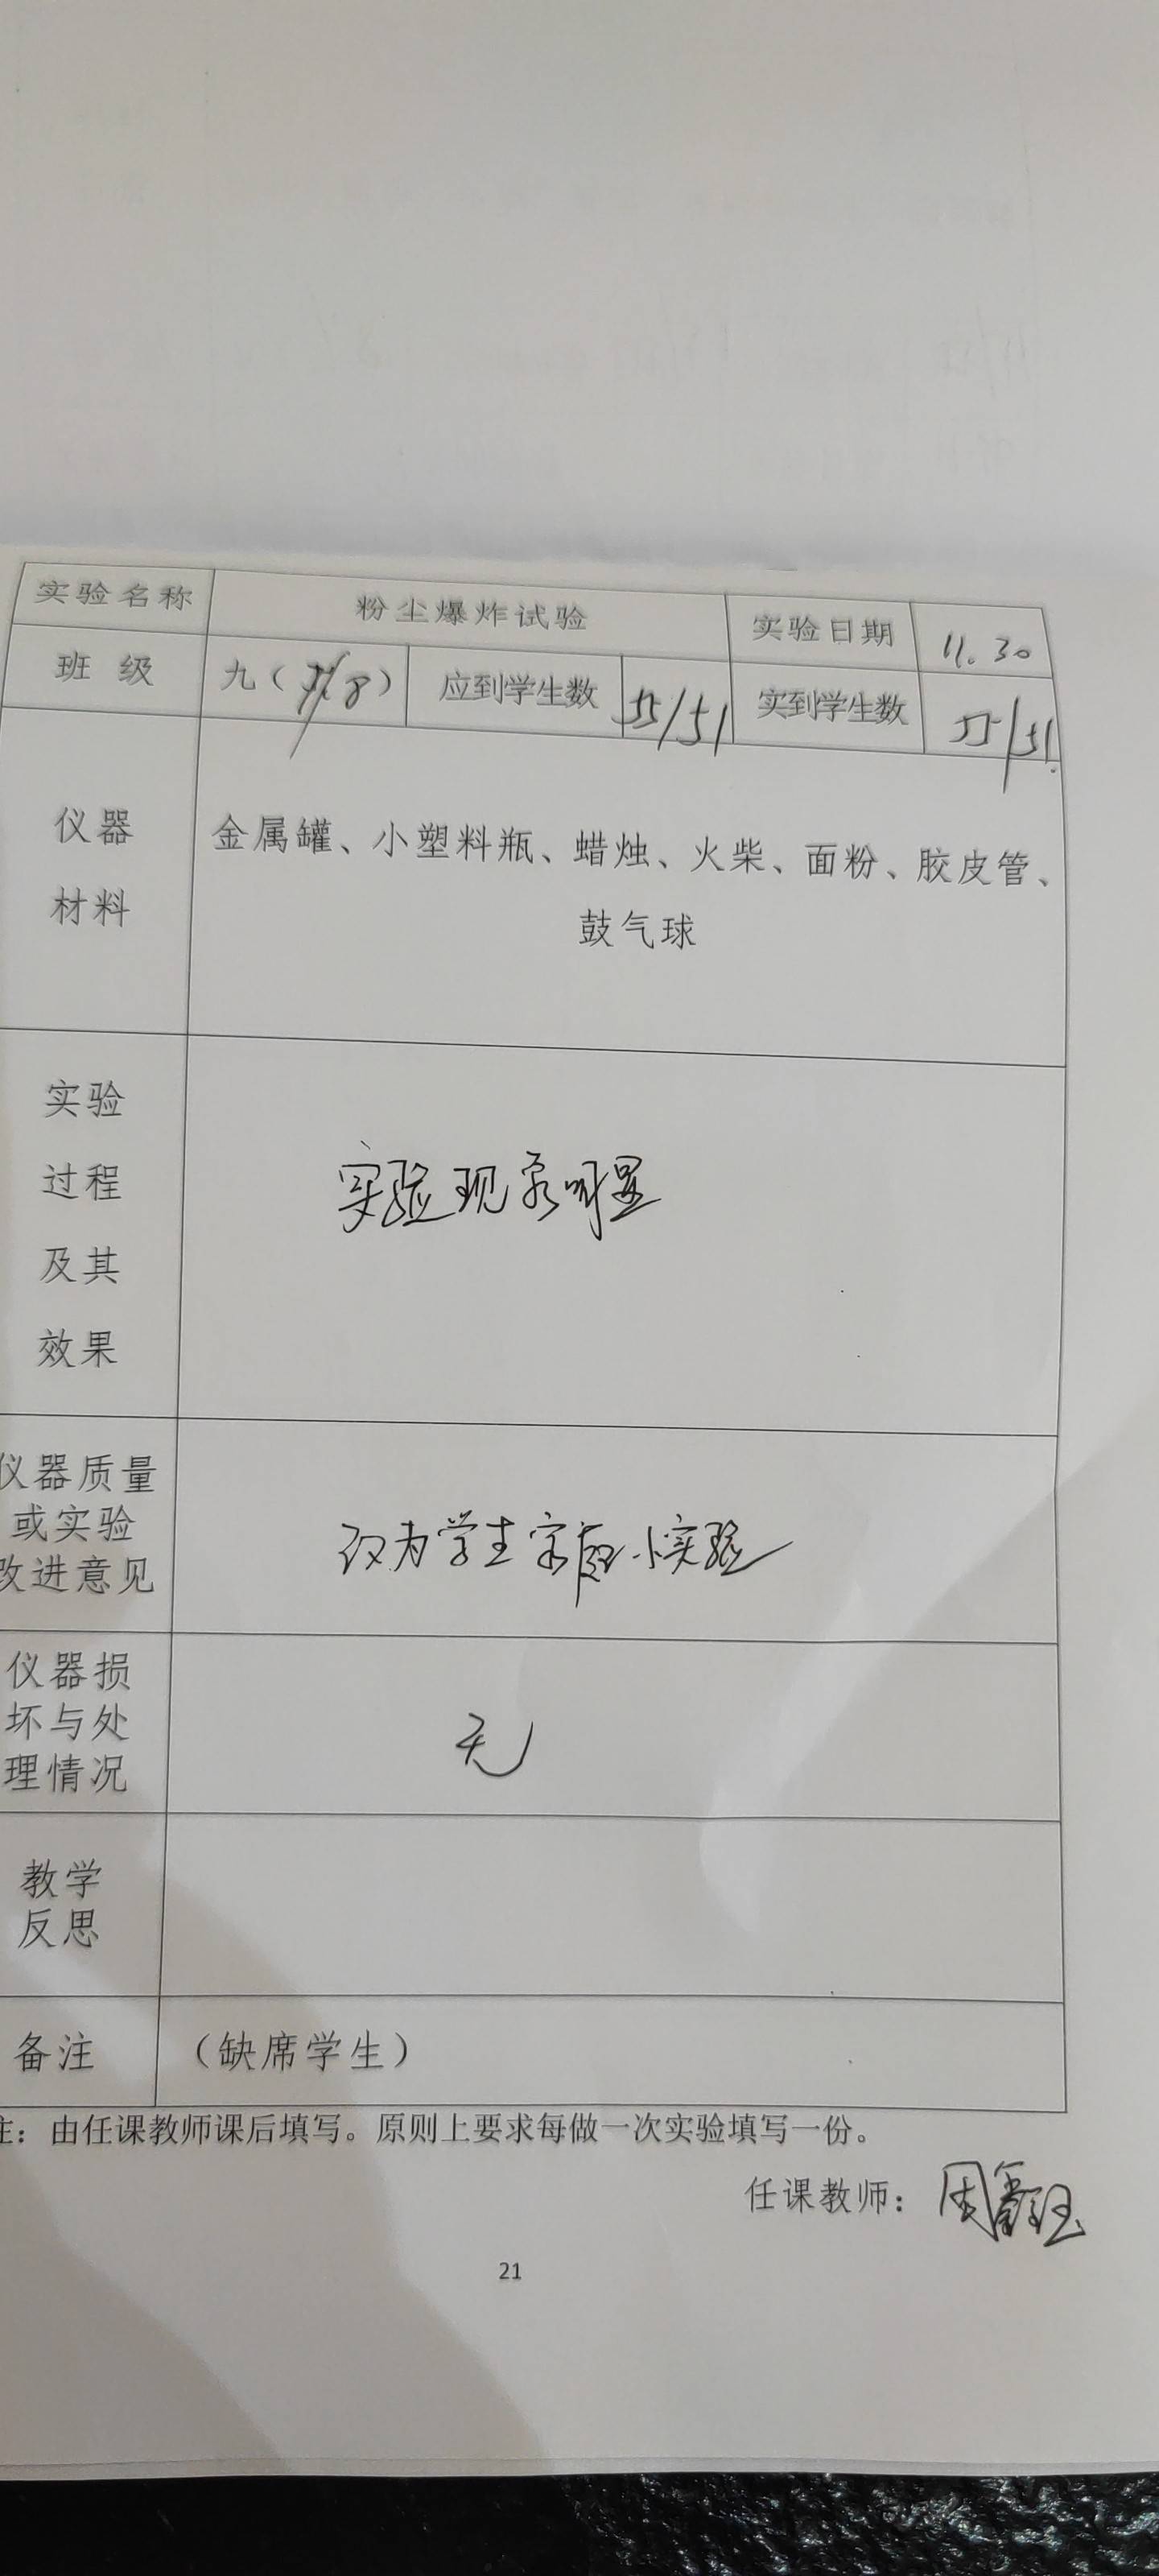 实验名称 粉尘爆炸试验 实验日期 11.30
班 级 九（ /8） 应到学生数 55/51 实到学生数 55/51
仪器
材料
金属罐、小塑料瓶、蜡烛、火柴、面粉、胶皮管、
鼓气球
实验
过程
及其
效果
实验现象明显
仪器质量
或实验
改进意见
改为学生家庭小实验
仪器损
坏与处
理情况
无
教学
反思
备注 （缺席学生）
注：由任课教师课后填写。原则上要求每做一次实验填写一份。
任课教师：周鑫钰
21